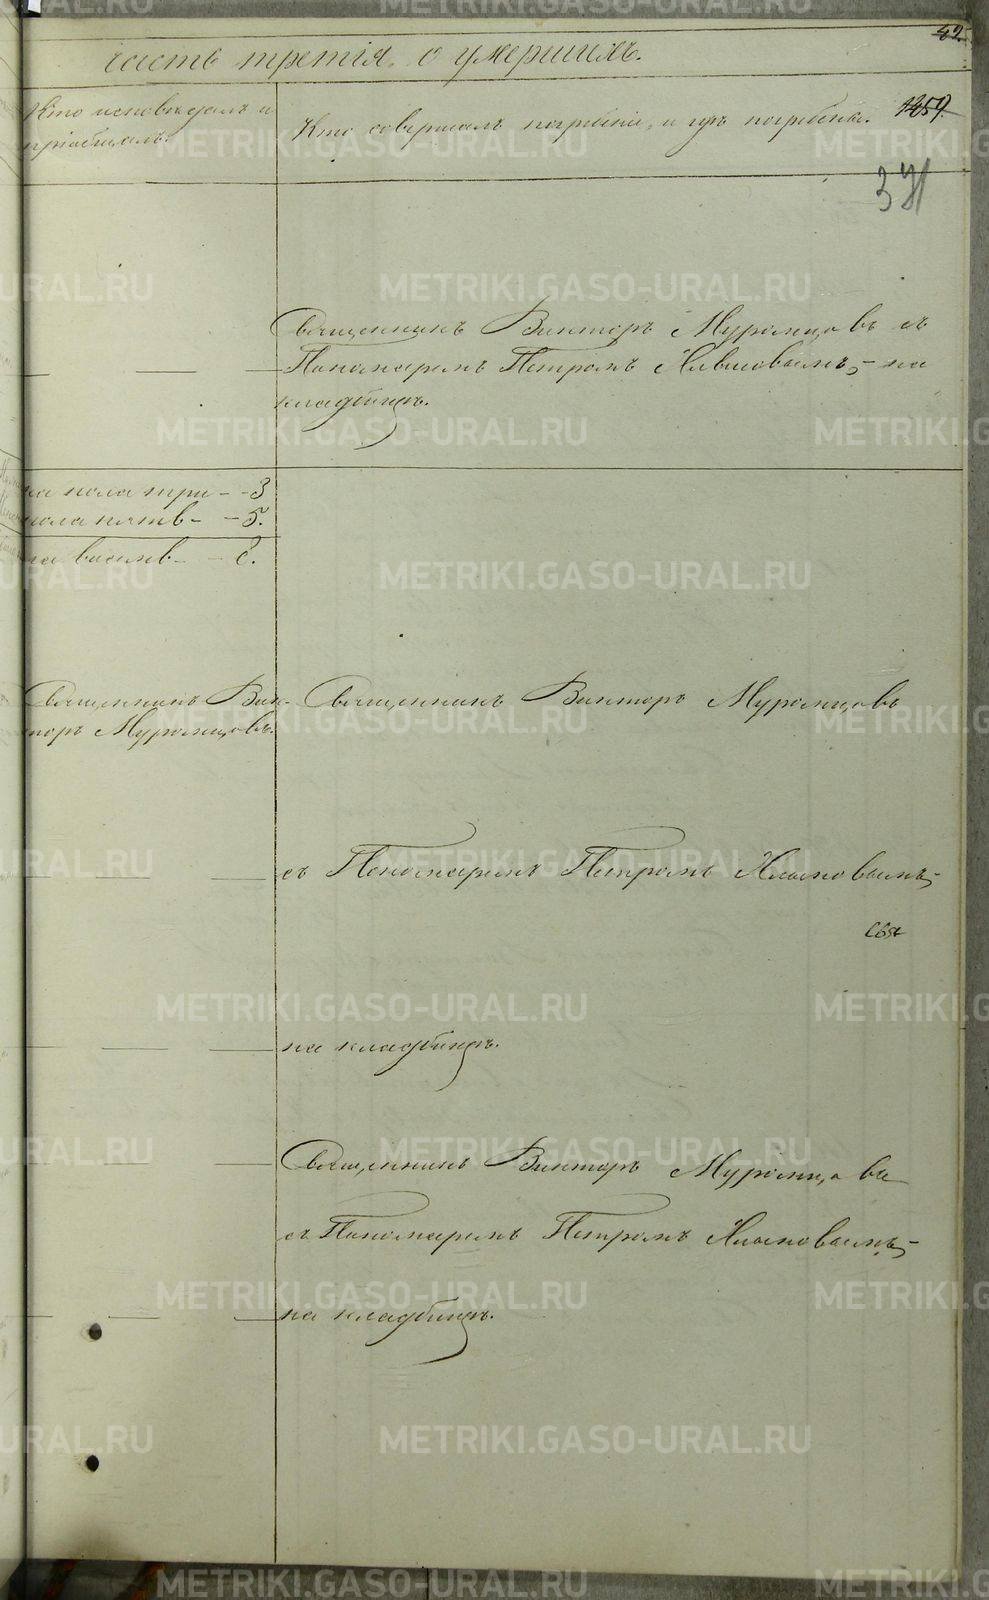 42.
часть третія, о умершихъ.
Кто исповедалъ и
пріобщалъ.
Кто совершалъ погребеніе, и где погребены.
1259
371
Священникъ Викторъ Муромцовъ съ
Пономаремъ Петромъ на
кладбищѣ.
ка пола три - - 3
пола пять - - 5.
ка восемь - - 8.
Священникъ Вик-
торъ Муромцовъ.
Священникъ Викторъ Муромцовъ
съ Пономаремъ Петромъ
свя
на кладбищѣ.
Священникъ Викторъ Муромцовъ
съ Пономаремъ Петромъ
на кладбищѣ.
METRIKI.GASO-URAL.RU